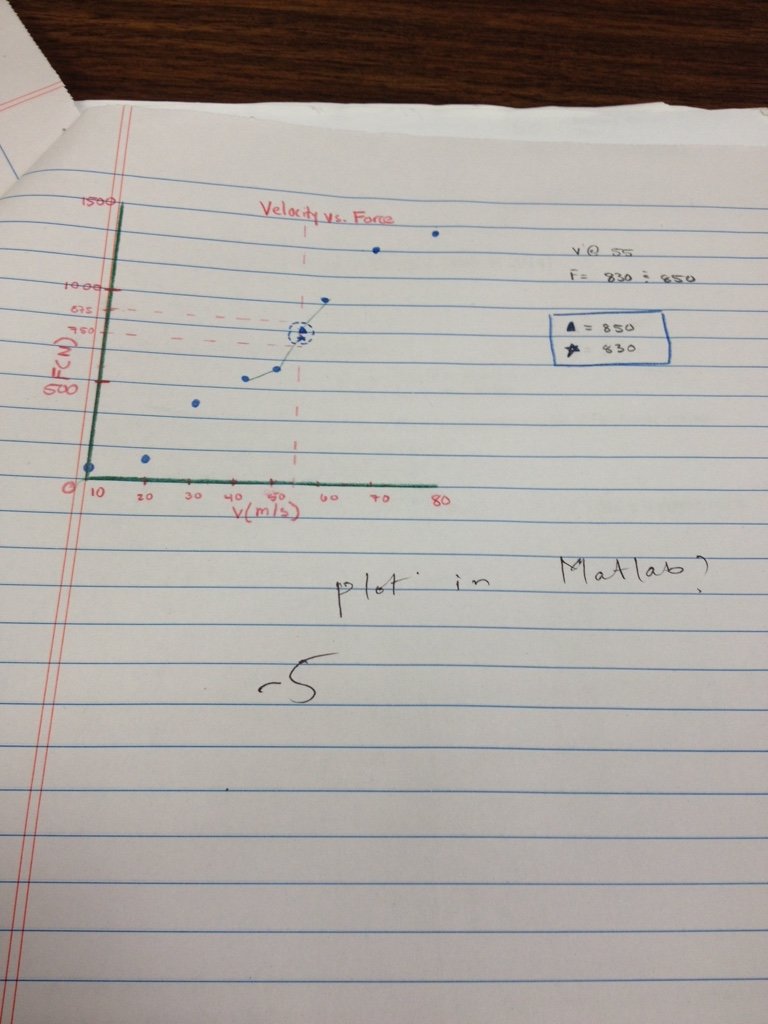 Velocity vs. Force
1500
1000
875
750
500
F(N)
0 10 20 30 40 50 60 70 80
V(m/s)
V @ 55
F = 830 ÷ 850
▲ = 850
★ 830
plot in Matlab?
-5